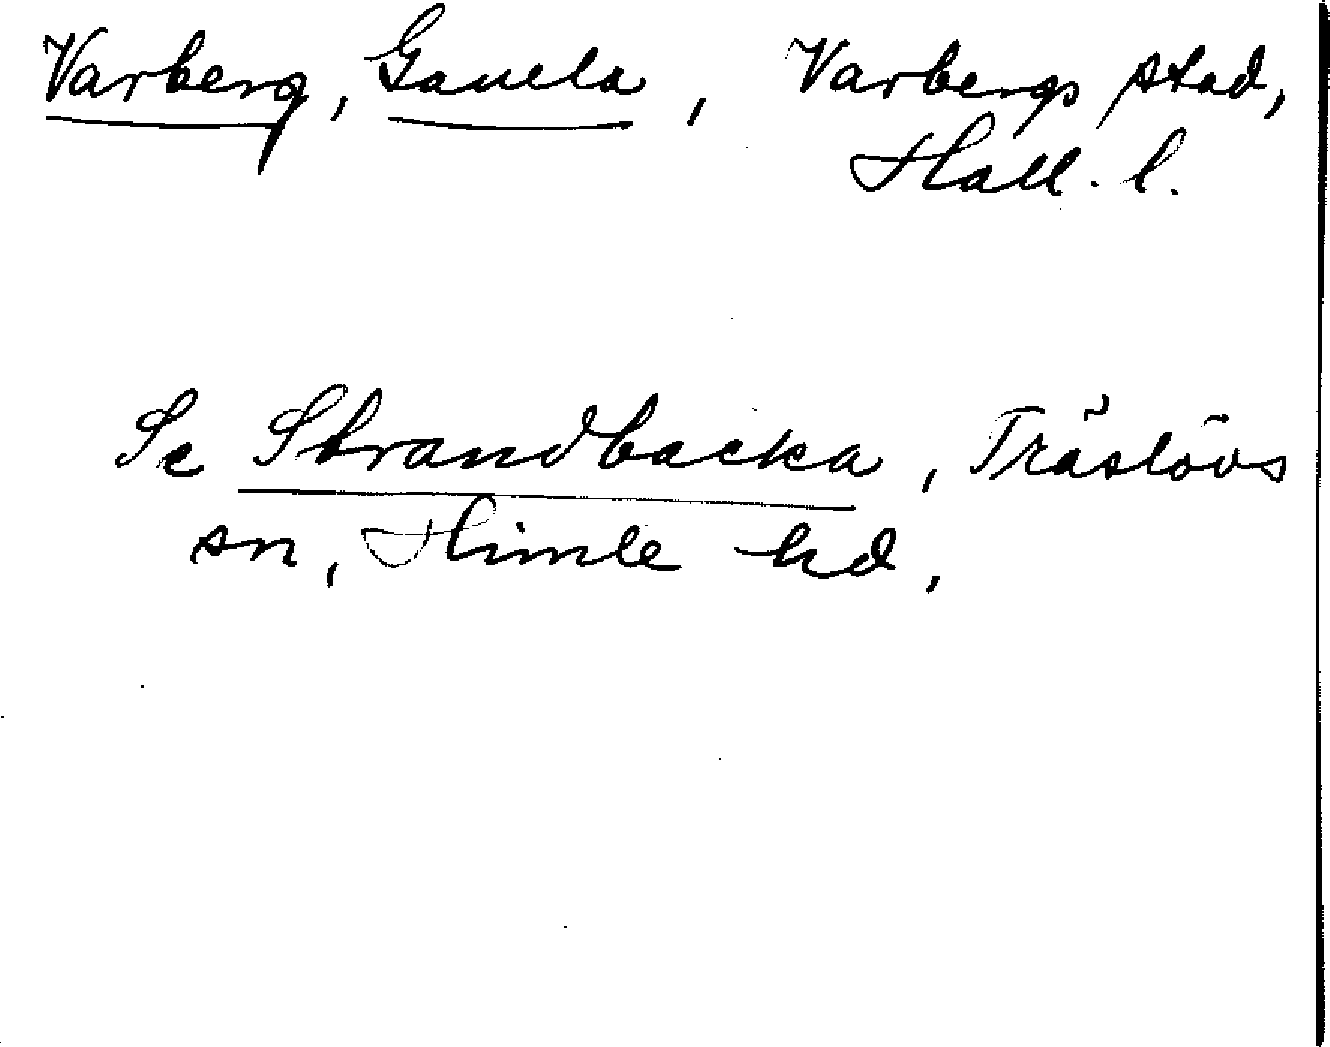 Varberg, Gamla, Varbergs stad,
Hall. l.
Se Strandbacka, Träslövs
sn, Himle hd.